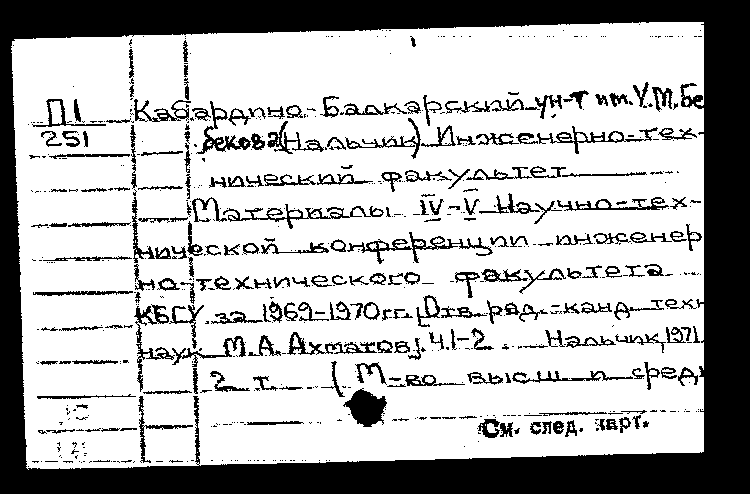 П1 Кабардино-Балкарский ун-т им. У.М. Бе
251 бекова (Нальчик) Инженерно-тех-
нический факультет
Материалы IV-V Научно-тех-
нической конференции инженер
но-технического факультета
КБГУ за 1969-1970гг. [Отв. ред.-канд. техн
наук М.А. Ахматов]. Ч.1-2. Нальчик, 1971
2 т. (М-во высш и средн
См. след. карт.